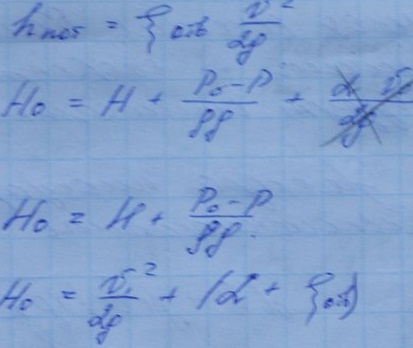 hпот = ζотв v²/2g
H₀ = H + (P₀-P)/ρg + α v̅/2g
H₀ = H + (P₀-P)/ρg.
H₀ = v₁²/2g + (α + ζотв)